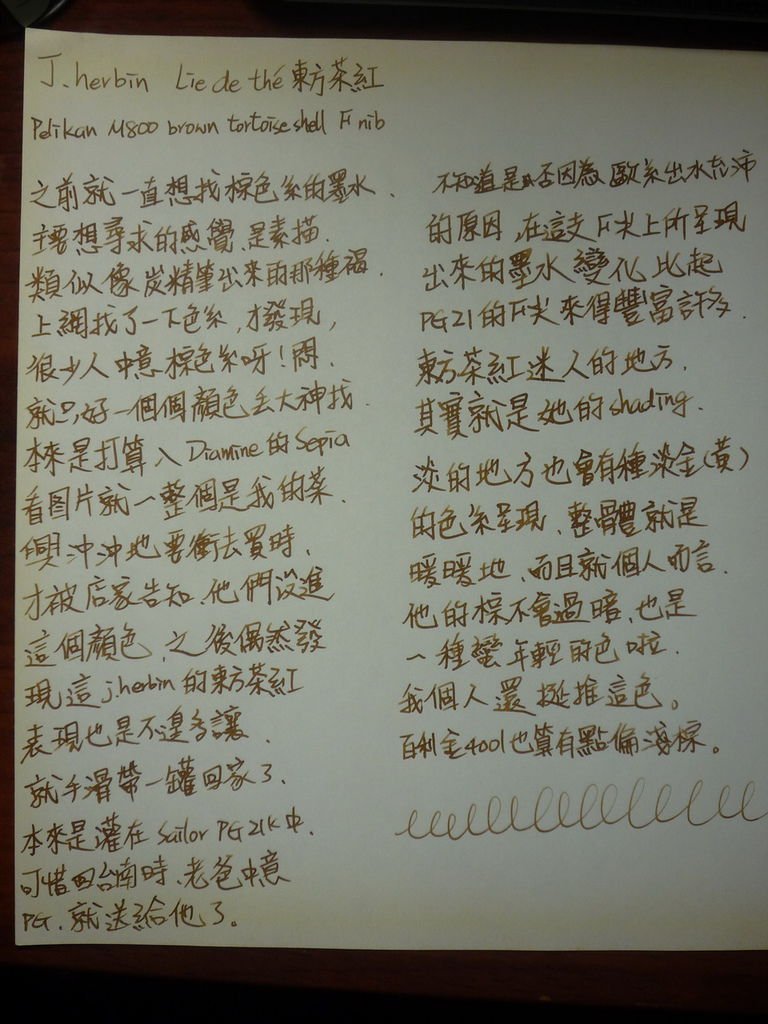 J. herbin Lie de thé 東方茶紅
Pelikan M800 brown tortoise shell F nib
之前就一直想找棕色系的墨水、
主要想尋求的感覺是素描.
類似像炭精筆出來的那種褐.
上網找了一下色系,才發現,
很少人中意棕色系呀!悶.
就只好一個個顏色丟大神找.
本來是打算入 Diamine 的 Sepia
看图片就一整個是我的菜.
興沖沖地要衝去買時,
才被店家告知,他們沒進
這個顏色,之後偶然發
現這 j.herbin 的東方茶紅
表現也是不遑多讓.
就手滑帶一罐回家了.
本來是灌在 Sailor PG 21K 中.
可惜回台南時、老爸中意
PG.就送給他了。
不知道是否因為歐系出水充沛
的原因,在這支F尖上所呈現
出來的墨水變化比起
PG21的F尖來得豐富許多.
東方茶紅迷人的地方.
其實就是她的 shading.
淡的地方也會有種淡金(黃)
的色系呈現,整體就是
暖暖地、而且就個人而言.
他的棕不會過暗,也是
一種蠻年輕的色啦.
我個人還挺推這色。
百利金4001也算有點偏淺棕。